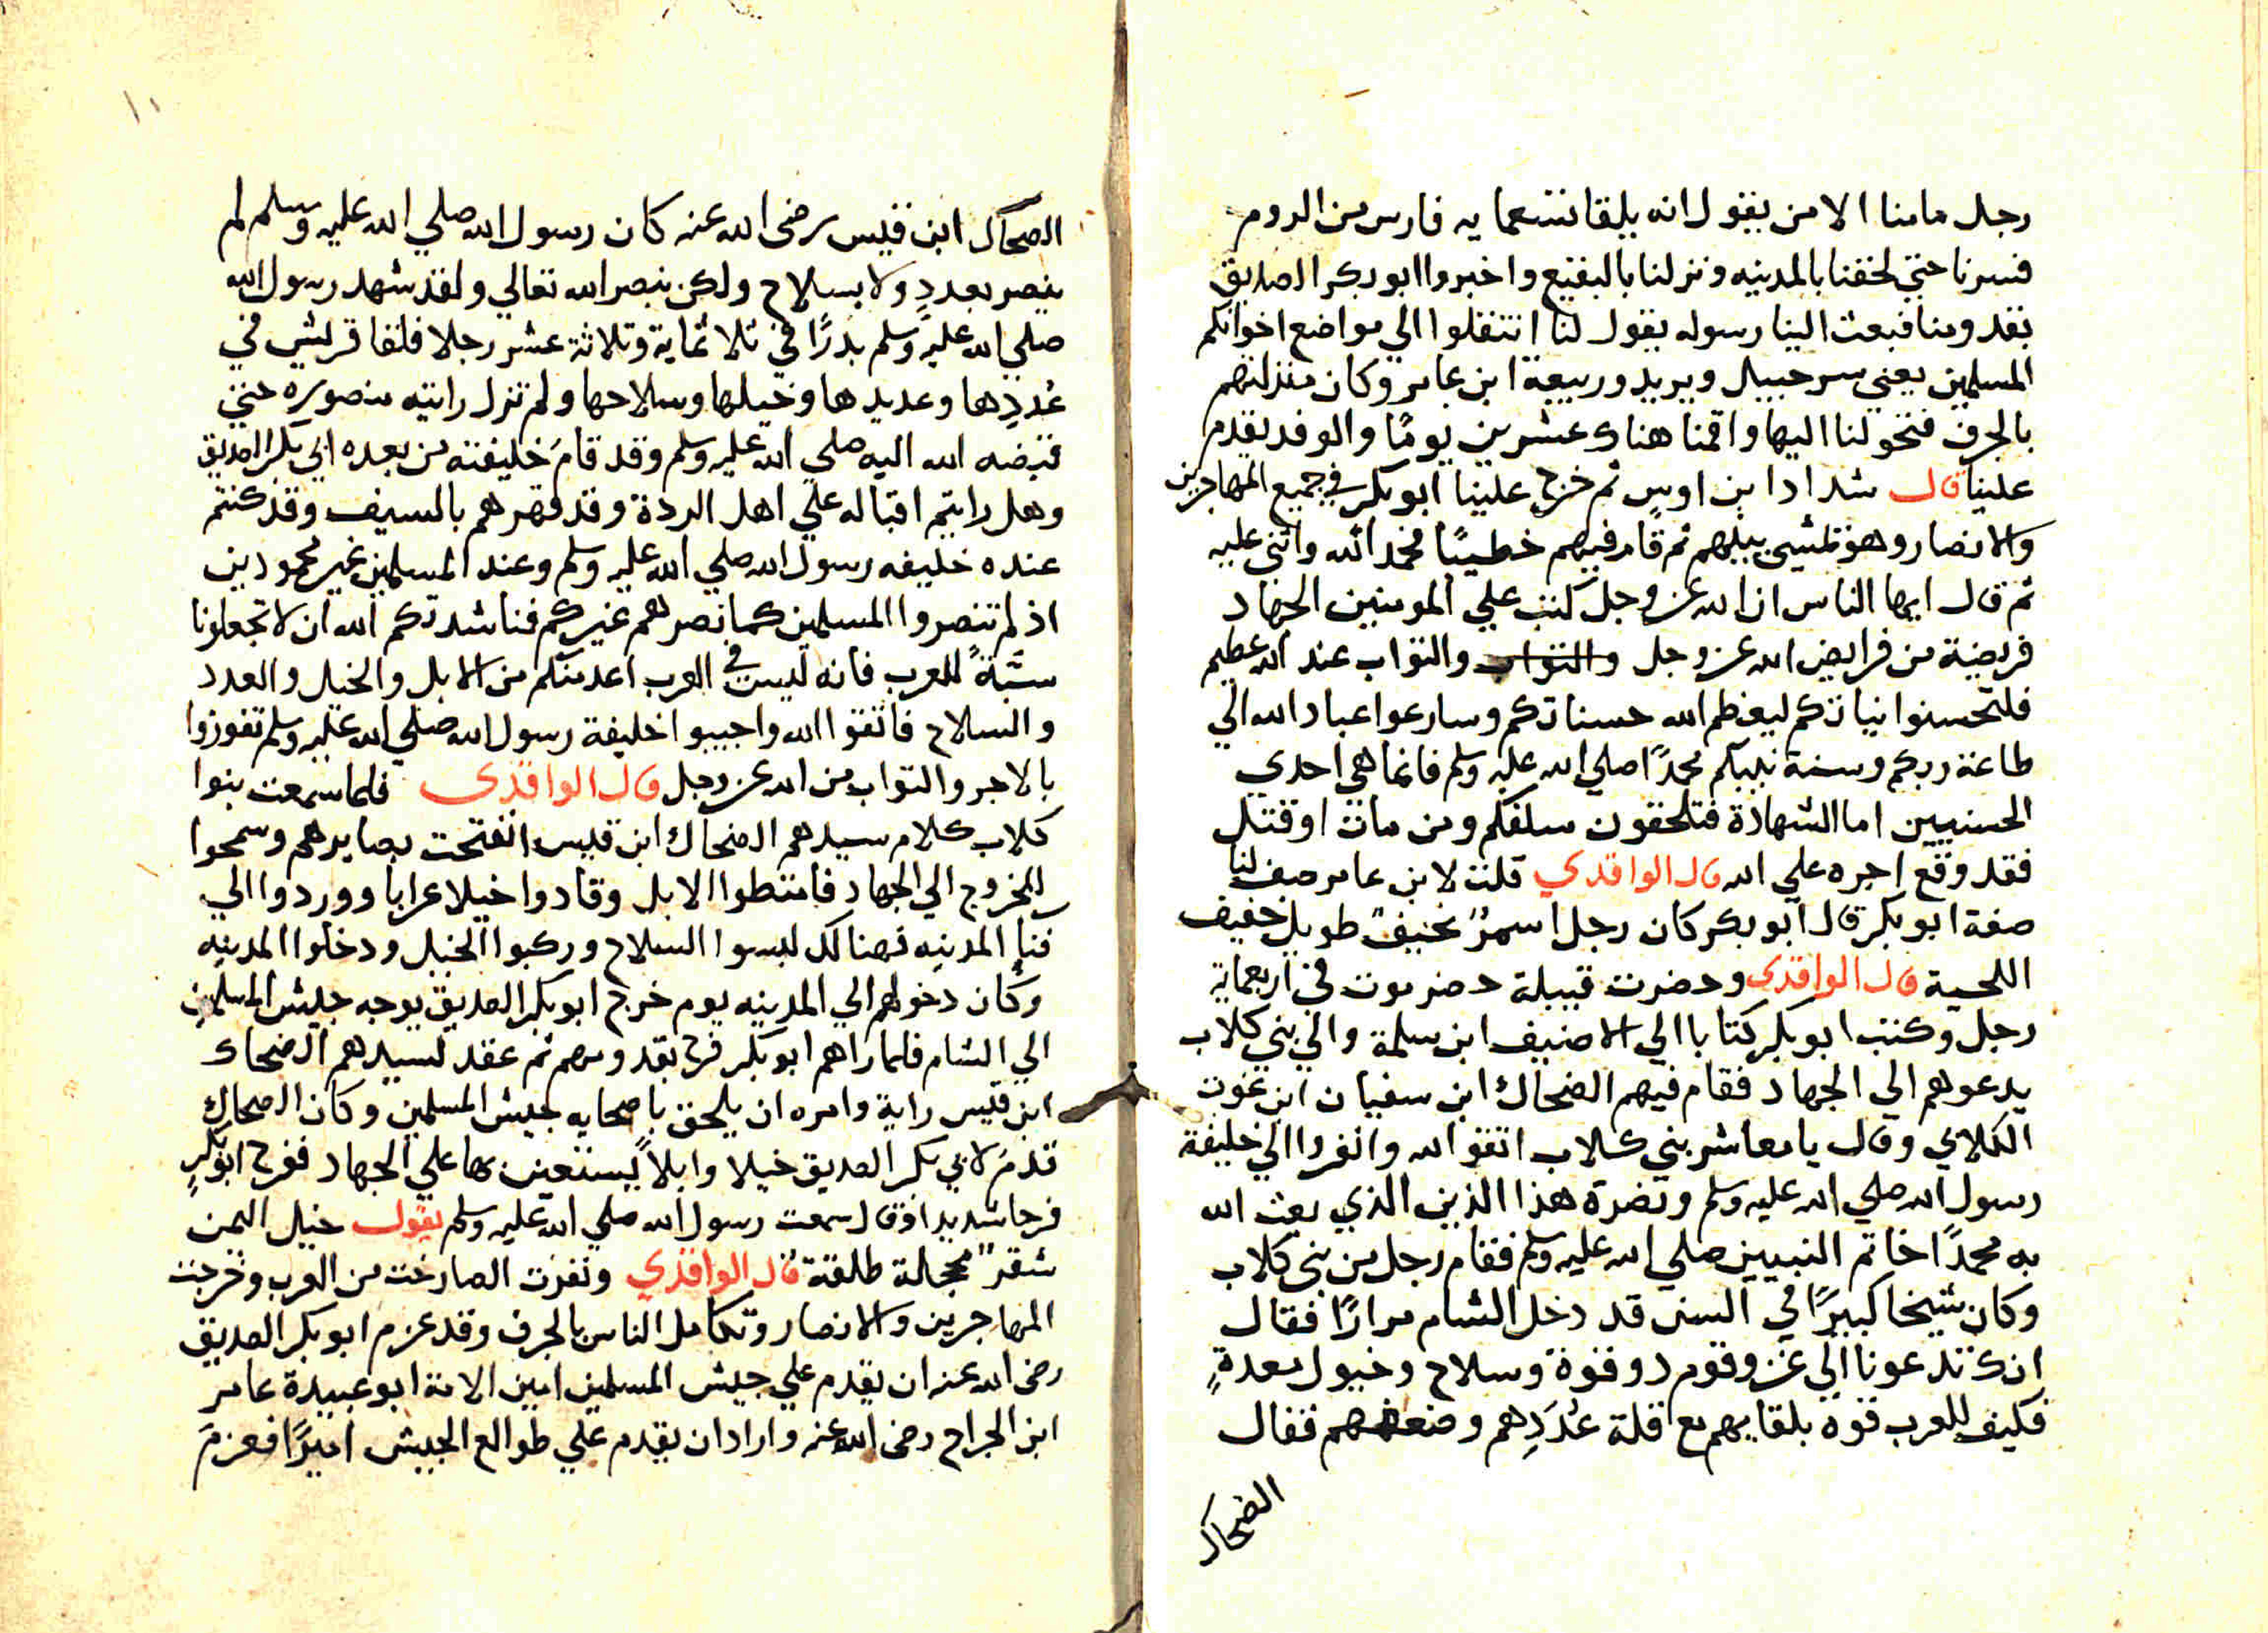 رجل مامنا الا من يقول انه يلقا تسعمايه فارس من الروم
فسرنا حتى لحقنا بالمدينه ونزلنا بالبقيع واخبروا ابو بكر الصديق
بقدومنا فبعث الينا رسوله يقول لنا انتقلوا الي مواضع اخوانكم
المسلمين يعني سرحبيل ويريد وربيعة ابن عامر وكان منزلتهم
بالجرف فتحولنا اليها واقمنا هناك عشرين يومًا والوفد يقدم
علينا قال شداد ابن اوس ثم خرج علينا ابو بكر في جميع المهاجرين
والانصار وهو يمشي بينهم ثم قام فيهم خطيبًا فحمد الله واثني عليه
ثم قال ايها الناس ان الله عز وجل كتب علي المومنين الجهاد
فريضة من فرايض الله عز وجل والثواب والثواب عند الله عظيم
فلتحسنوا نياتكم ليعظم الله حسناتكم وسارعوا عباد الله الي
طاعة ربكم وسنة نبيكم محمدًا صلي الله عليه وسلم فانما هي احدي
الحسنيين اما الشهادة فتلحقون سلفكم ومن مات او قتل
فقد وقع اجره علي الله قال الواقدي قلت لابن عامر صف لنا
صفة ابو بكر قال ابو بكر كان رجل اسمرُ نحيفٌ طويل خفيف
اللحية قال الواقدي وحضرت قبيلة حضرموت في اربعماية
رجل وكتب ابو بكر كتابا الي الاصنيف ابن سلمة والي بني كلاب
يدعوهم الي الجهاد فقام فيهم الضحاك ابن سفيان ابن عوت
الكلابي وقال يا معاشر بني كلاب اتقو الله وانفروا الي خليفة
رسول الله صلي الله عليه وسلم ونصرة هذا الدين الذي بعث الله
به محمدًا خاتم النبيين صلي الله عليه وسلم فقام رجل من بني كلاب
وكان شيخا كبيرًا في السن قد دخل الشام مرارًا فقال
انك تدعونا الي غزو قوم دو قوة وسلاح وخيول معدةٍ
فكيف للعرب قوه بلقايهم مع قلة عُدَدِهم وضعفهم فقال
الضحاك
١٠
الصحاك ابن قيس رضى الله عنه كان رسول الله صلي الله عليه وسلم لم
ينصر بعددٍ ولا بسلاح ولكن بنصر الله تعالي ولقد شهد رسول الله
صلي الله عليه وسلم بدرًا في ثلاثماية وثلاثة عشر رجلا فلقا قريش في
عُددِها وعديدها وخيلها وسلاحها ولم تزل رايته منصوره حتي
قبضه الله اليه صلي الله عليه وسلم وقد قامَ خليفته من بعده ابي بكر الصديق
وهل رايتم اقباله علي اهل الردة وقد قهرهم بالسيف وقد كنتم
عنده خليفه رسول الله صلي الله عليه وسلم وعند المسلمين غير محمودين
اذ لم تنصروا المسلمين كما نصرهم غيركم فناشدتكم الله ان لا تجعلونا
سبّةً للعرب فانه ليس في العرب اعد منكم من الابل والخيل والعدد
والسلاح فاتقوا الله واجيبوا خليفة رسول الله صلي الله عليه وسلم تفوزوا
بالاجر والثواب من الله عز وجل قال الواقدى فلما سمعت بنوا
كلاب كلام سيدهم الضحاك ابن قيس انفتحت بصايرهم وسمحوا
للخروج الي الجهاد فامتطوا الابل وقادوا خيلا عرابا ووردوا الي
فنا المدينه فهنالك لبسوا السلاح وركبوا الخيل ودخلوا المدينه
وكان دخولهم الي المدينه يوم خرج ابو بكر الصديق يوجه جيش المسلمين
الي الشام فلما راهم ابو بكر فرح بقدومهم ثم عقد لسيدهم الضحاك
ابن قيس راية وامره ان يلحق باصحابه بجيش المسلمين وكان الصحاك
قدمَ لابي بكر الصديق خيلا وابلاً يستعين بها علي الجهاد ففرح ابو بكرٍ
فرحا شديدا وقال سمعت رسول الله صلي الله عليه وسلم يقول خيل اليمن
شقرٌ محجلة طلقة قال الواقدي ونفرت الصارخت من العرب وخرجت
المهاجرين والانصار وتكامل الناس بالجرف وقد عزم ابو بكر الصديق
رضى الله عنه ان يقدم علي جيش المسلمين امين الامة ابو عبيدة عامر
ابن الجراح رضى الله عنه واراد ان يقدم علي طوالع الجيش اميرًا فعزمَ